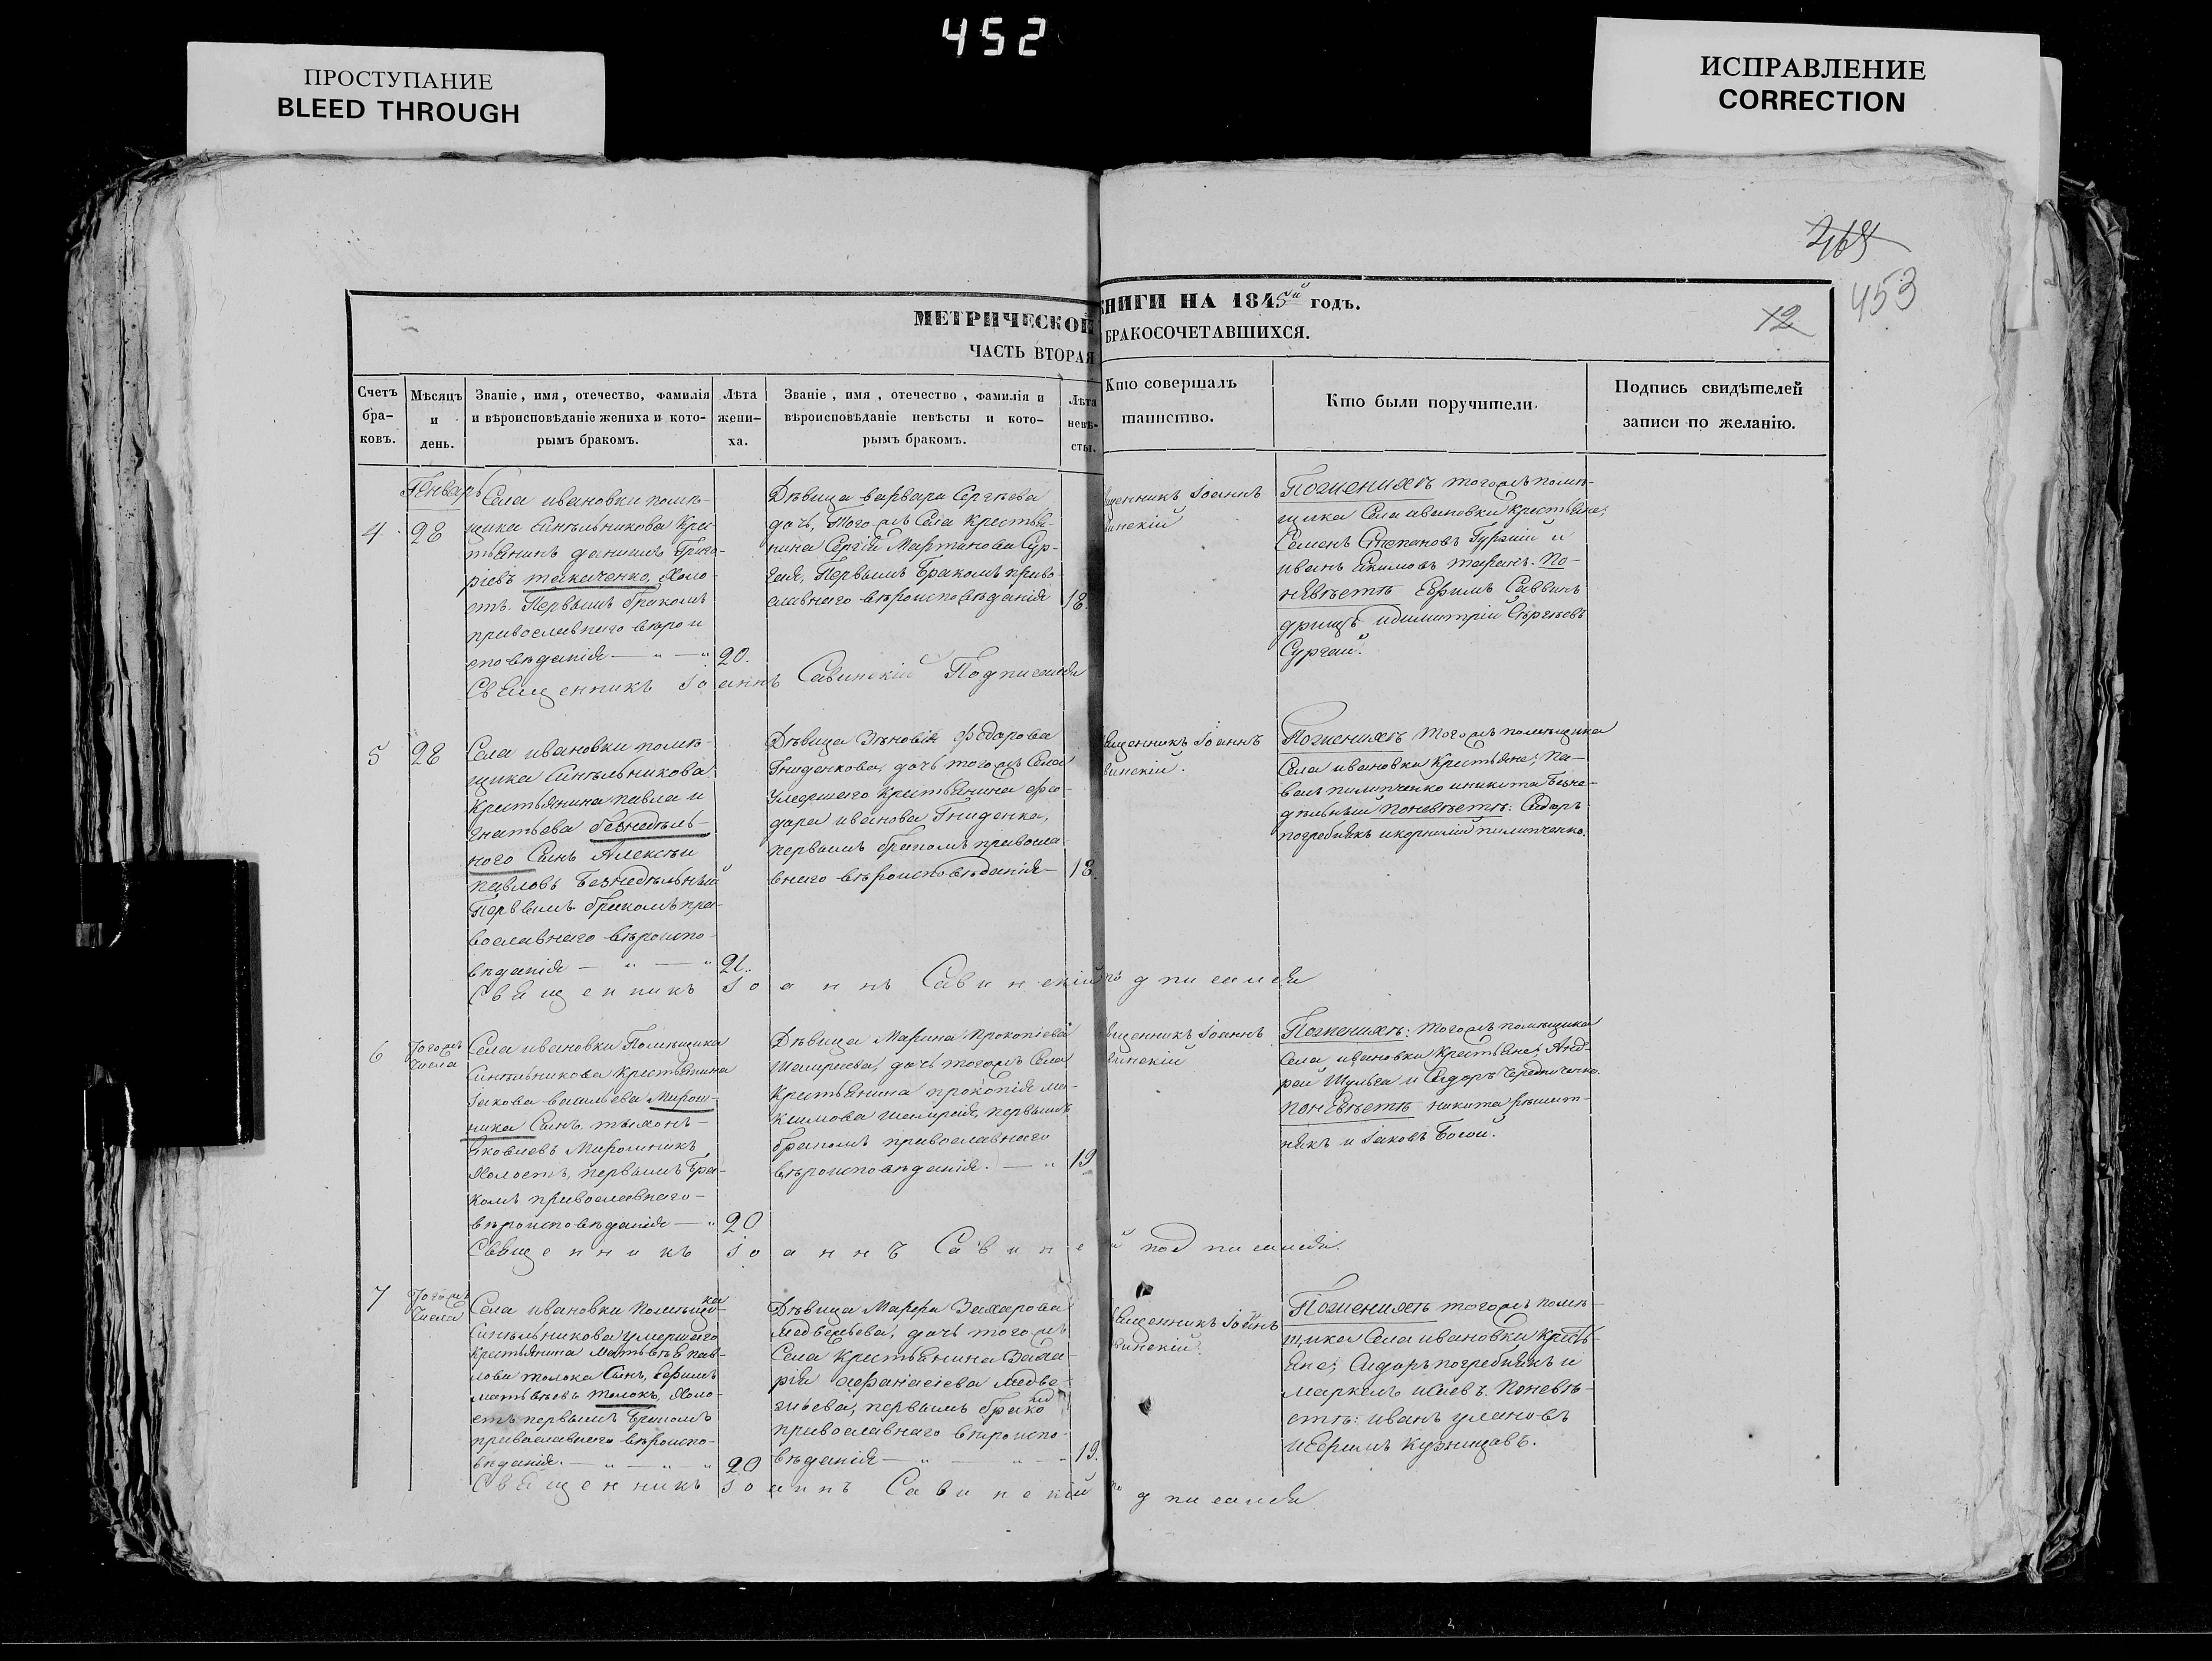 452
ПРОСТУПАНИЕ
BLEED THROUGH
ИСПРАВЛЕНИЕ
CORRECTION
453
12
МЕТРИЧЕСКОЙ
НИГИ НА 1845й годъ.
ЧАСТЬ ВТОРАЯ
БРАКОСОЧЕТАВШИХСЯ.
Счетъ бра- ковъ.
Мѣсяцъ и день.
Званіе, имя, отечество, фамилія и вѣроисповѣданіе жениха и кото- рымъ бракомъ.
Лѣта жени- ха.
Званіе, имя, отечество, фамилія и вѣроисповѣданіе невѣсты и кото- рымъ бракомъ.
Лѣта невѣ- сты.
Кто совершалъ таинство.
Кто были поручители.
Подпись свидѣтелей записи по желанію.
Генварь
4
28
Села ивановки помѣ-
щика Синѣльникова Крес
тьянинъ данiилъ Григо-
рiевъ ткаченко, Холо-
стъ. Первымъ бракомъ
православнаго вѣрои
сповѣданія
20.
Дѣвица варвара Сергѣева
дочь, того жъ Села Крестья-
нина Сергія Мартинова Сур-
гая, Первымъ Бракомъ право
славнаго вѣроисповѣданія
18.
щенникъ Іоаннъ
винскій
Поженихѣ того жъ помѣ-
щика Села ивановки крестьяне;
Семенъ Степановъ Гурзкiй и
иванъ Екимовъ таранъ. По-
невѣстѣ Ефимъ Саввинъ
дрищъ идимитрій Сѣргѣевъ
Сургай.
Священникъ Іоаннъ Савинскій Подписался
5
28
Села ивановки помѣ-
щика Синѣльникова
Крестьянина павла и
гнатьева безнедѣль-
ного Сынъ Алексѣи
павловъ Безнедѣльный
Первымъ бракомъ пра-
вославнаго вѣроиспо-
вѣданія
21.
Дѣвица Зѣновія Федорова
Гниденкова, дочь того жъ Села
Умершаго Крестьянина фео-
дора иванова Гниденка,
первымъ бракомъ правосла
внаго вѣроисповѣданія
18.
вященникъ Іоаннъ
винскій.
Поженихѣ того жъ помѣщика
Села ивановки Крестьяне; Па-
велъ пилипченко иникита Безне-
дѣльный поневѣстѣ: Сидоръ
погребнякъ икорнилій пилипченко.
Священникъ Іоаннъ Савинскій подписался
6
Тогожъ
Числа
Села ивановки Помѣщика
Синѣльникова Крестьянина
Іакова васильева Мирош-
ника Сынъ тихонъ
Яковлевъ Мирошникъ
Холостъ, первымъ Бра-
комъ православнаго
вѣроисповѣданія
20
Дѣвица Марина Прокопіева
Шамраева, дочь того жъ Села
Крестьянина прокопія ма-
ксимова шамрая, первымъ
бракомъ православнаго
вѣроисповѣданія.
19
вященникъ Іоаннъ
винскій
Поженихѣ: того жъ помѣщика
Села ивановки Крестьяне; Анд-
рей Шульга и Сидоръ Чередниченко.
поневѣстѣ никита рѣшет-
някъ и Іаковъ Босой.
Священникъ Іоаннъ Савинс й подписался.
7
Тогожъ
Числа
Села ивановки помѣщика
Синѣльникова умершаго
Крестьянина Матьвѣя пав-
лова толока Сынъ, Ефимъ
матьвѣевъ Толокъ, Холо-
стъ первымъ Бракомъ
православнаго вѣроиспо-
вѣданія.
20
Дѣвица Марфа Захарова
медведьева, дочь того жъ
Села Крестьянина Заха-
рія афанасіева медве-
дьева, первымъ бракомъ
православнаго вѣроиспо-
вѣданія
19.
вященникъ Іоаннъ
винскій.
Поженихѣ того жъ помѣ-
щика Села ивановки Кресть-
яне; Сидоръ погребнякъ и
маркелъ исаевъ. Поневѣ-
стѣ: иванъ улановъ
иЕфимъ Кузницовъ.
Священникъ Іоаннъ Савинскій подписался